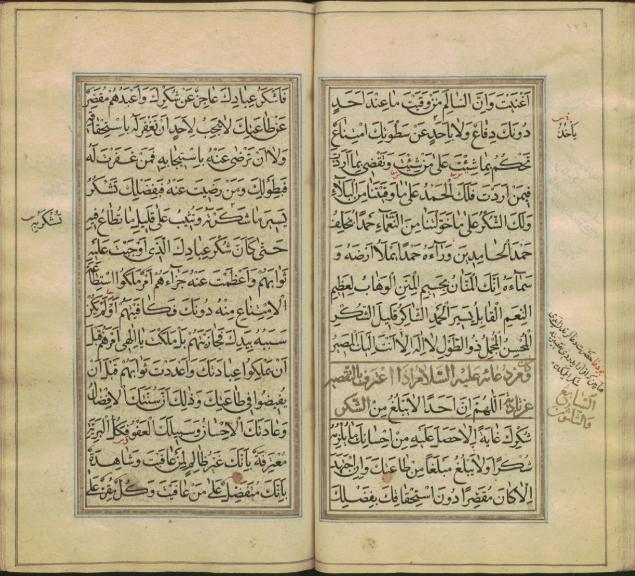 أغنيت وإن السالم من وقيت ما عند أحد
دونك دفاع ولا بأحد عن سطوتك امتناع
تحكم بما شئت على من شئت وتقضي بما أردت
فيمن أردت فلك الحمد على ما وقيتنا من البلاء
ولك الشكر على ما خولتنا من النعماء حمدا يخلف
حمد الحامدين وراءه حمدا يملأ أرضه و
سماءه إنك المنان بجسيم المنن الوهاب لعظيم
النعيم القابل يسير الحمد الشاكر قليل الشكر
المحسن المجمل ذو الطول لا إله إلا أنت إليك المصير
وكان من دعائه عليه السلام إذا اعترف بالتقصير
عن تأدية الشكر اللهم إن أحدا لا يبلغ من
شكرك غاية إلا حصل عليه من إحسانك ما يلزمه
شكرا ولا يبلغ مبلغا من طاعتك وإن اجتهد
إلا كان مقصرا دون استحقاقك بفضلك
يأخذ
السابع
والثلثون
فأشكر عبادك عاجز عن شكرك وأعبدهم مقصر
عن طاعتك لا يجب لأحد أن تغفر له باستحقاقه
ولا أن ترضى عنه باستيجابه فمن غفرت له
فبطولك ومن رضيت عنه فبفضلك تشكر
يسير ما شكرته وتثيب على قليل ما تطاع فيه
حتى كأن شكر عبادك الذي أوجبت عليه
ثوابهم وأعظمت عنه جزاءهم أمر ملكوا استطاعة
الامتناع منه دونك فكافيتهم أو لم يكن
سببه بيدك فجازيتهم بل ملكت يا إلهي أمرهم قبل
أن يملكوا عبادتك وأعددت ثوابهم قبل أن
يفيضوا في طاعتك وذلك أن سنتك الإفضال
وعادتك الإحسان وسبيلك العفو فكل البرية
معترفة بأنك غير ظالم لمن عاقبت وشاهدة
بأنك متفضل على من عافيت وكل مقر على